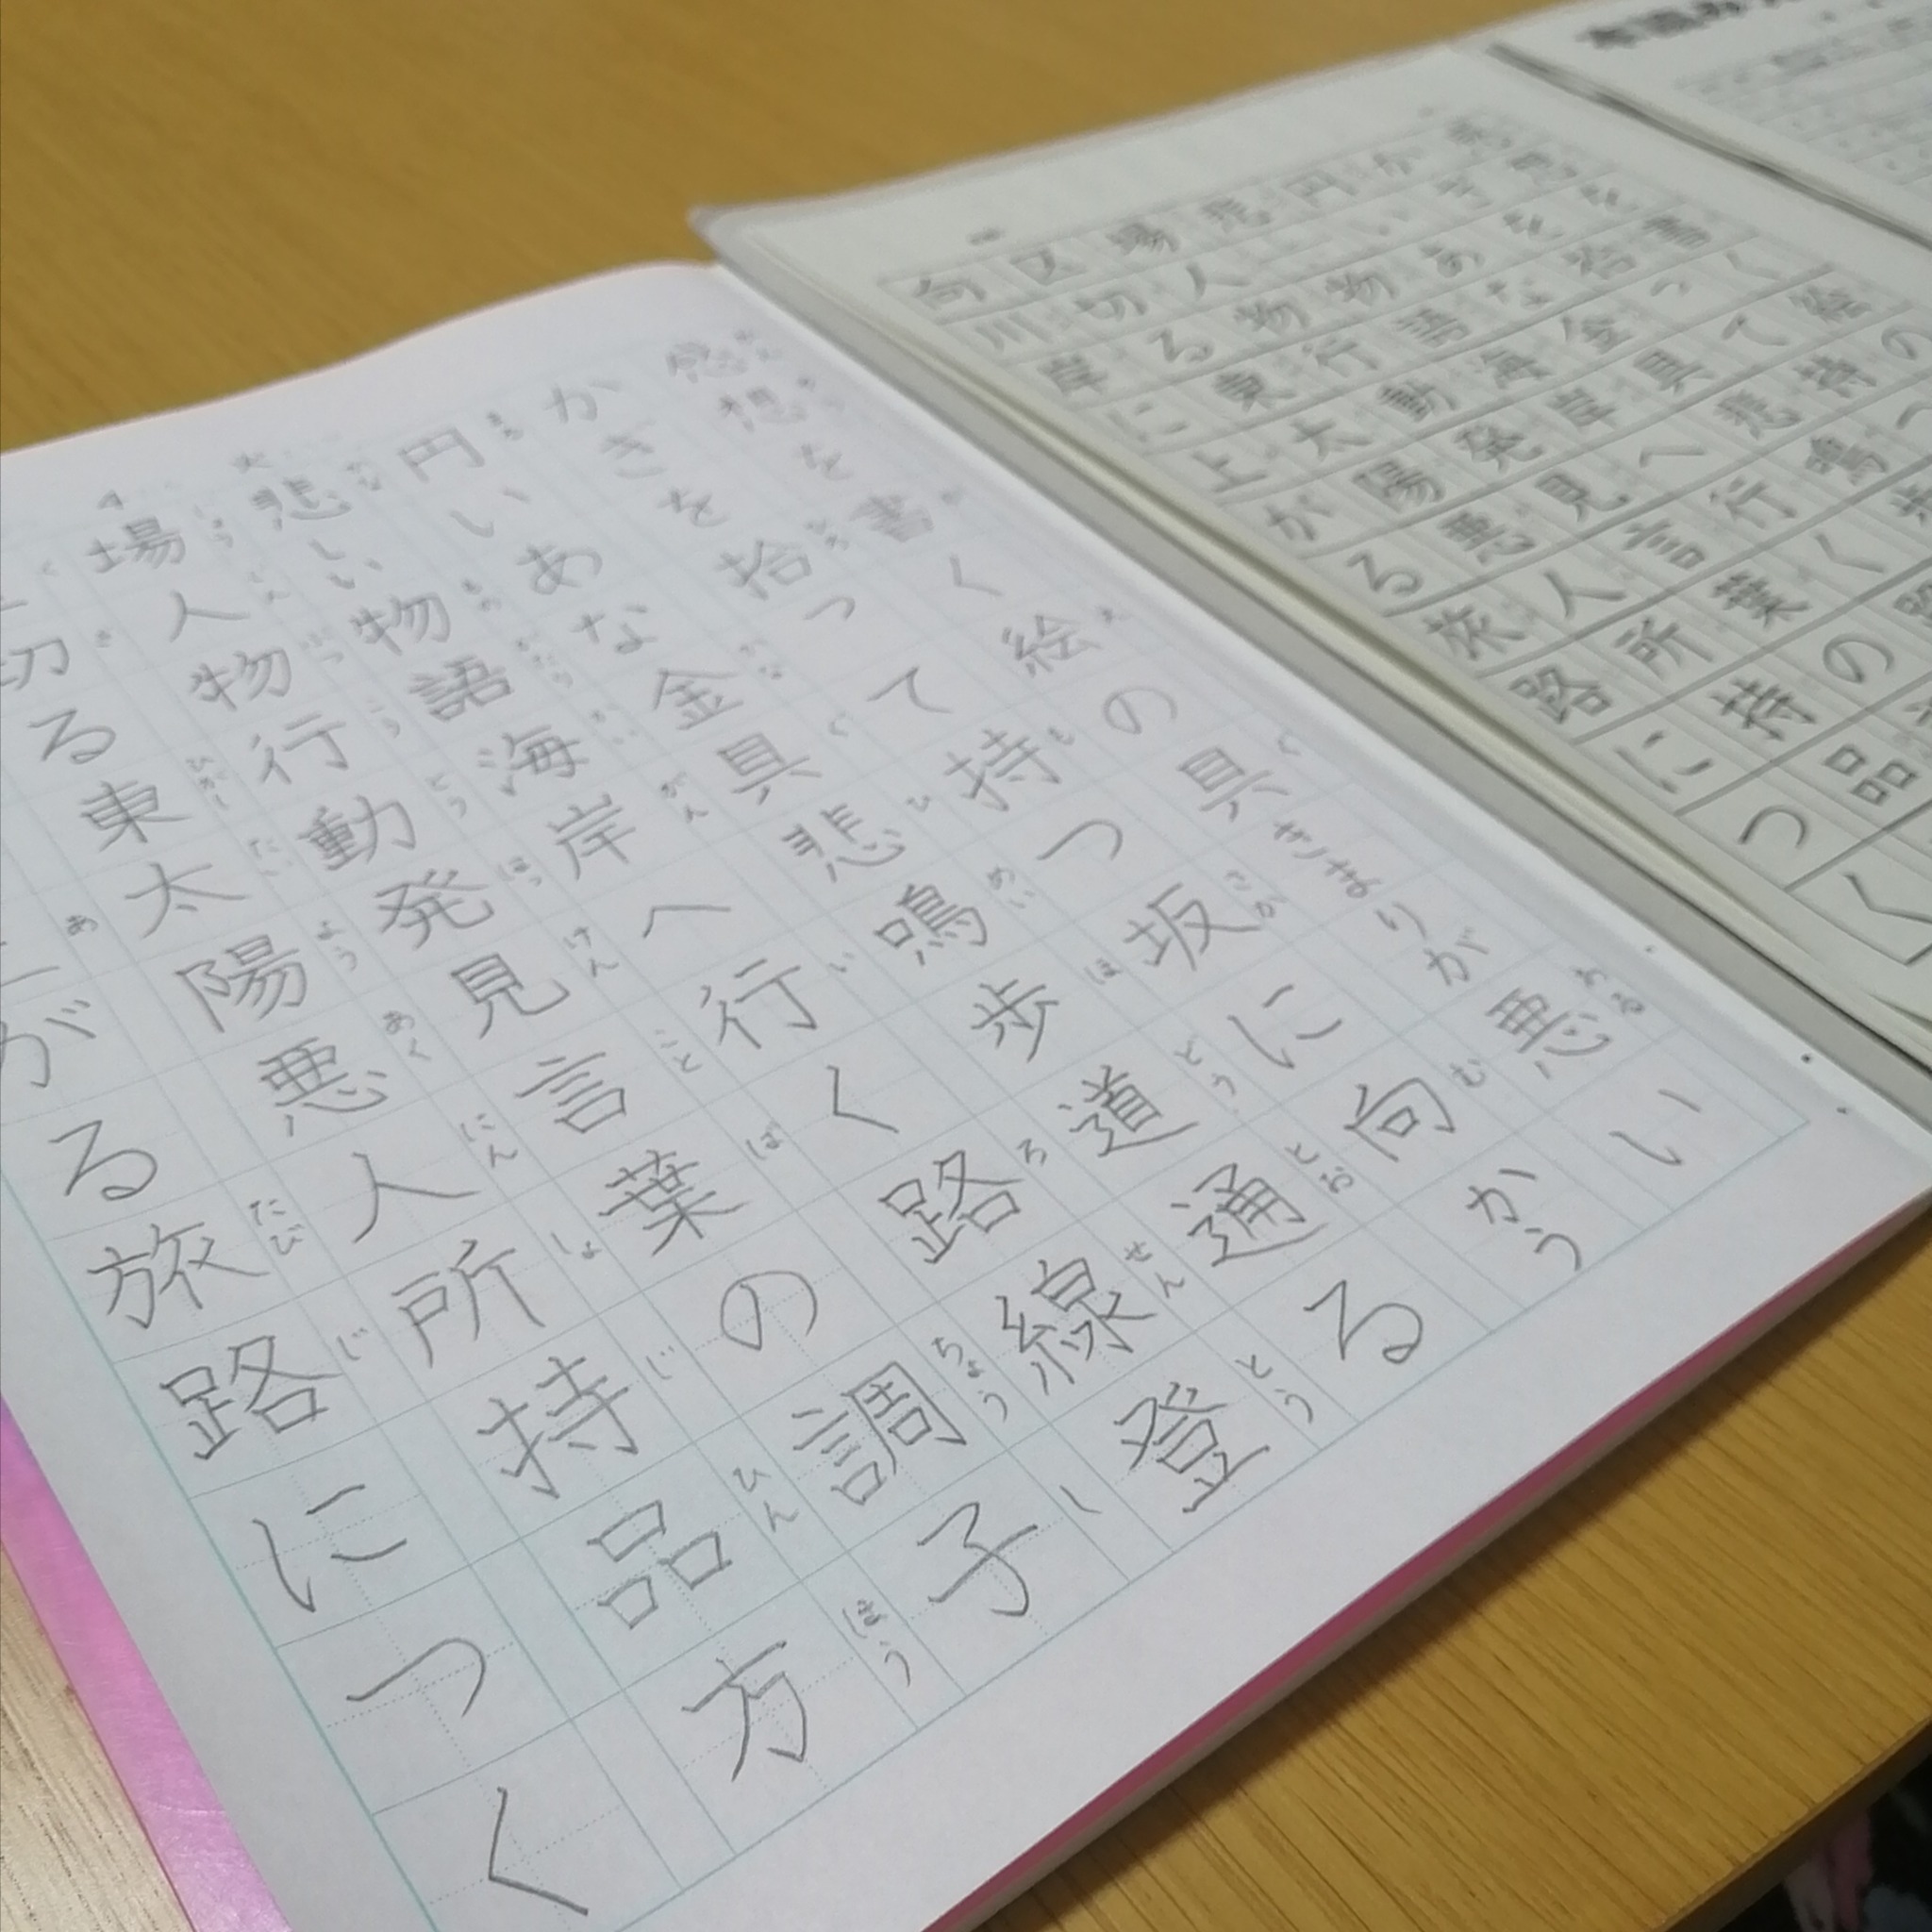 感想を書く絵の具きまりが悪い
かぎを拾って持つ坂に向かう
円いあな金具悲鳴歩道通る
悲しい物語海岸へ行く路線登
場人物行動発見言葉の調子
切る東太陽悪人所持品方
がる旅路につく
感想を書く絵の
かぎを拾って持つ
円いあな金具悲鳴歩
悲しい物語海岸へ行く路
場人物行動発見言葉の
区切る東太陽悪人所持品
向川岸に上がる旅路につく